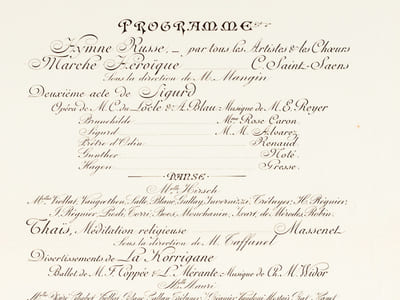 PROGRAMME
Hymne Russe, _ par tous les Artistes & les Chœurs
Marche Héroïque C. Saint-Saens
Sous la direction de M. Mangin
Deuxième acte de Sigurd
Opéra de M. C. du Locle & A. Blau: Musique de M. E. Reyer
Brunehilde Mme Rose Caron
Sigurd M. M. Alvarez
Prêtre d'Odin Renaud
Gunther Noté
Hagen Gresse
DANSE
Melle Hirsch
Melles Viollat, Vangœthen, Salle, Blanc, Gallay, Invernizzi, H. Régnier,
J. Régnier, Carré, Boos, Mouchanin, de Mérode, Robin.
Thaïs, Méditation religieuse Massenet
Sous la direction de M. Taffanel
Divertissements de La Korrigane
Ballet de M. F. Coppée & L. Mérante: Musique de Ch. M. Widor
Melle Mauri